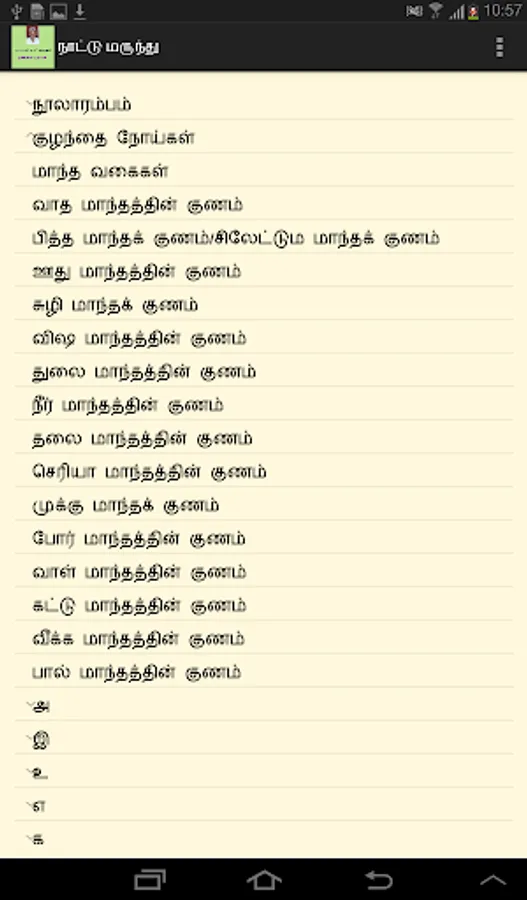 10:57
நாட்டு மருந்து
நூலாரம்பம்
குழந்தை நோய்கள்
மாந்த வகைகள்
வாத மாந்தத்தின் குணம்
பித்த மாந்தக் குணம்/சிலேட்டும மாந்தக் குணம்
ஊது மாந்தத்தின் குணம்
சுழி மாந்தக் குணம்
விஷ மாந்தத்தின் குணம்
துலை மாந்தத்தின் குணம்
நீர் மாந்தத்தின் குணம்
தலை மாந்தத்தின் குணம்
செரியா மாந்தத்தின் குணம்
முக்கு மாந்தக் குணம்
போர் மாந்தத்தின் குணம்
வாள் மாந்தத்தின் குணம்
கட்டு மாந்தத்தின் குணம்
வீக்க மாந்தத்தின் குணம்
பால் மாந்தத்தின் குணம்
அ
இ
உ
எ
க